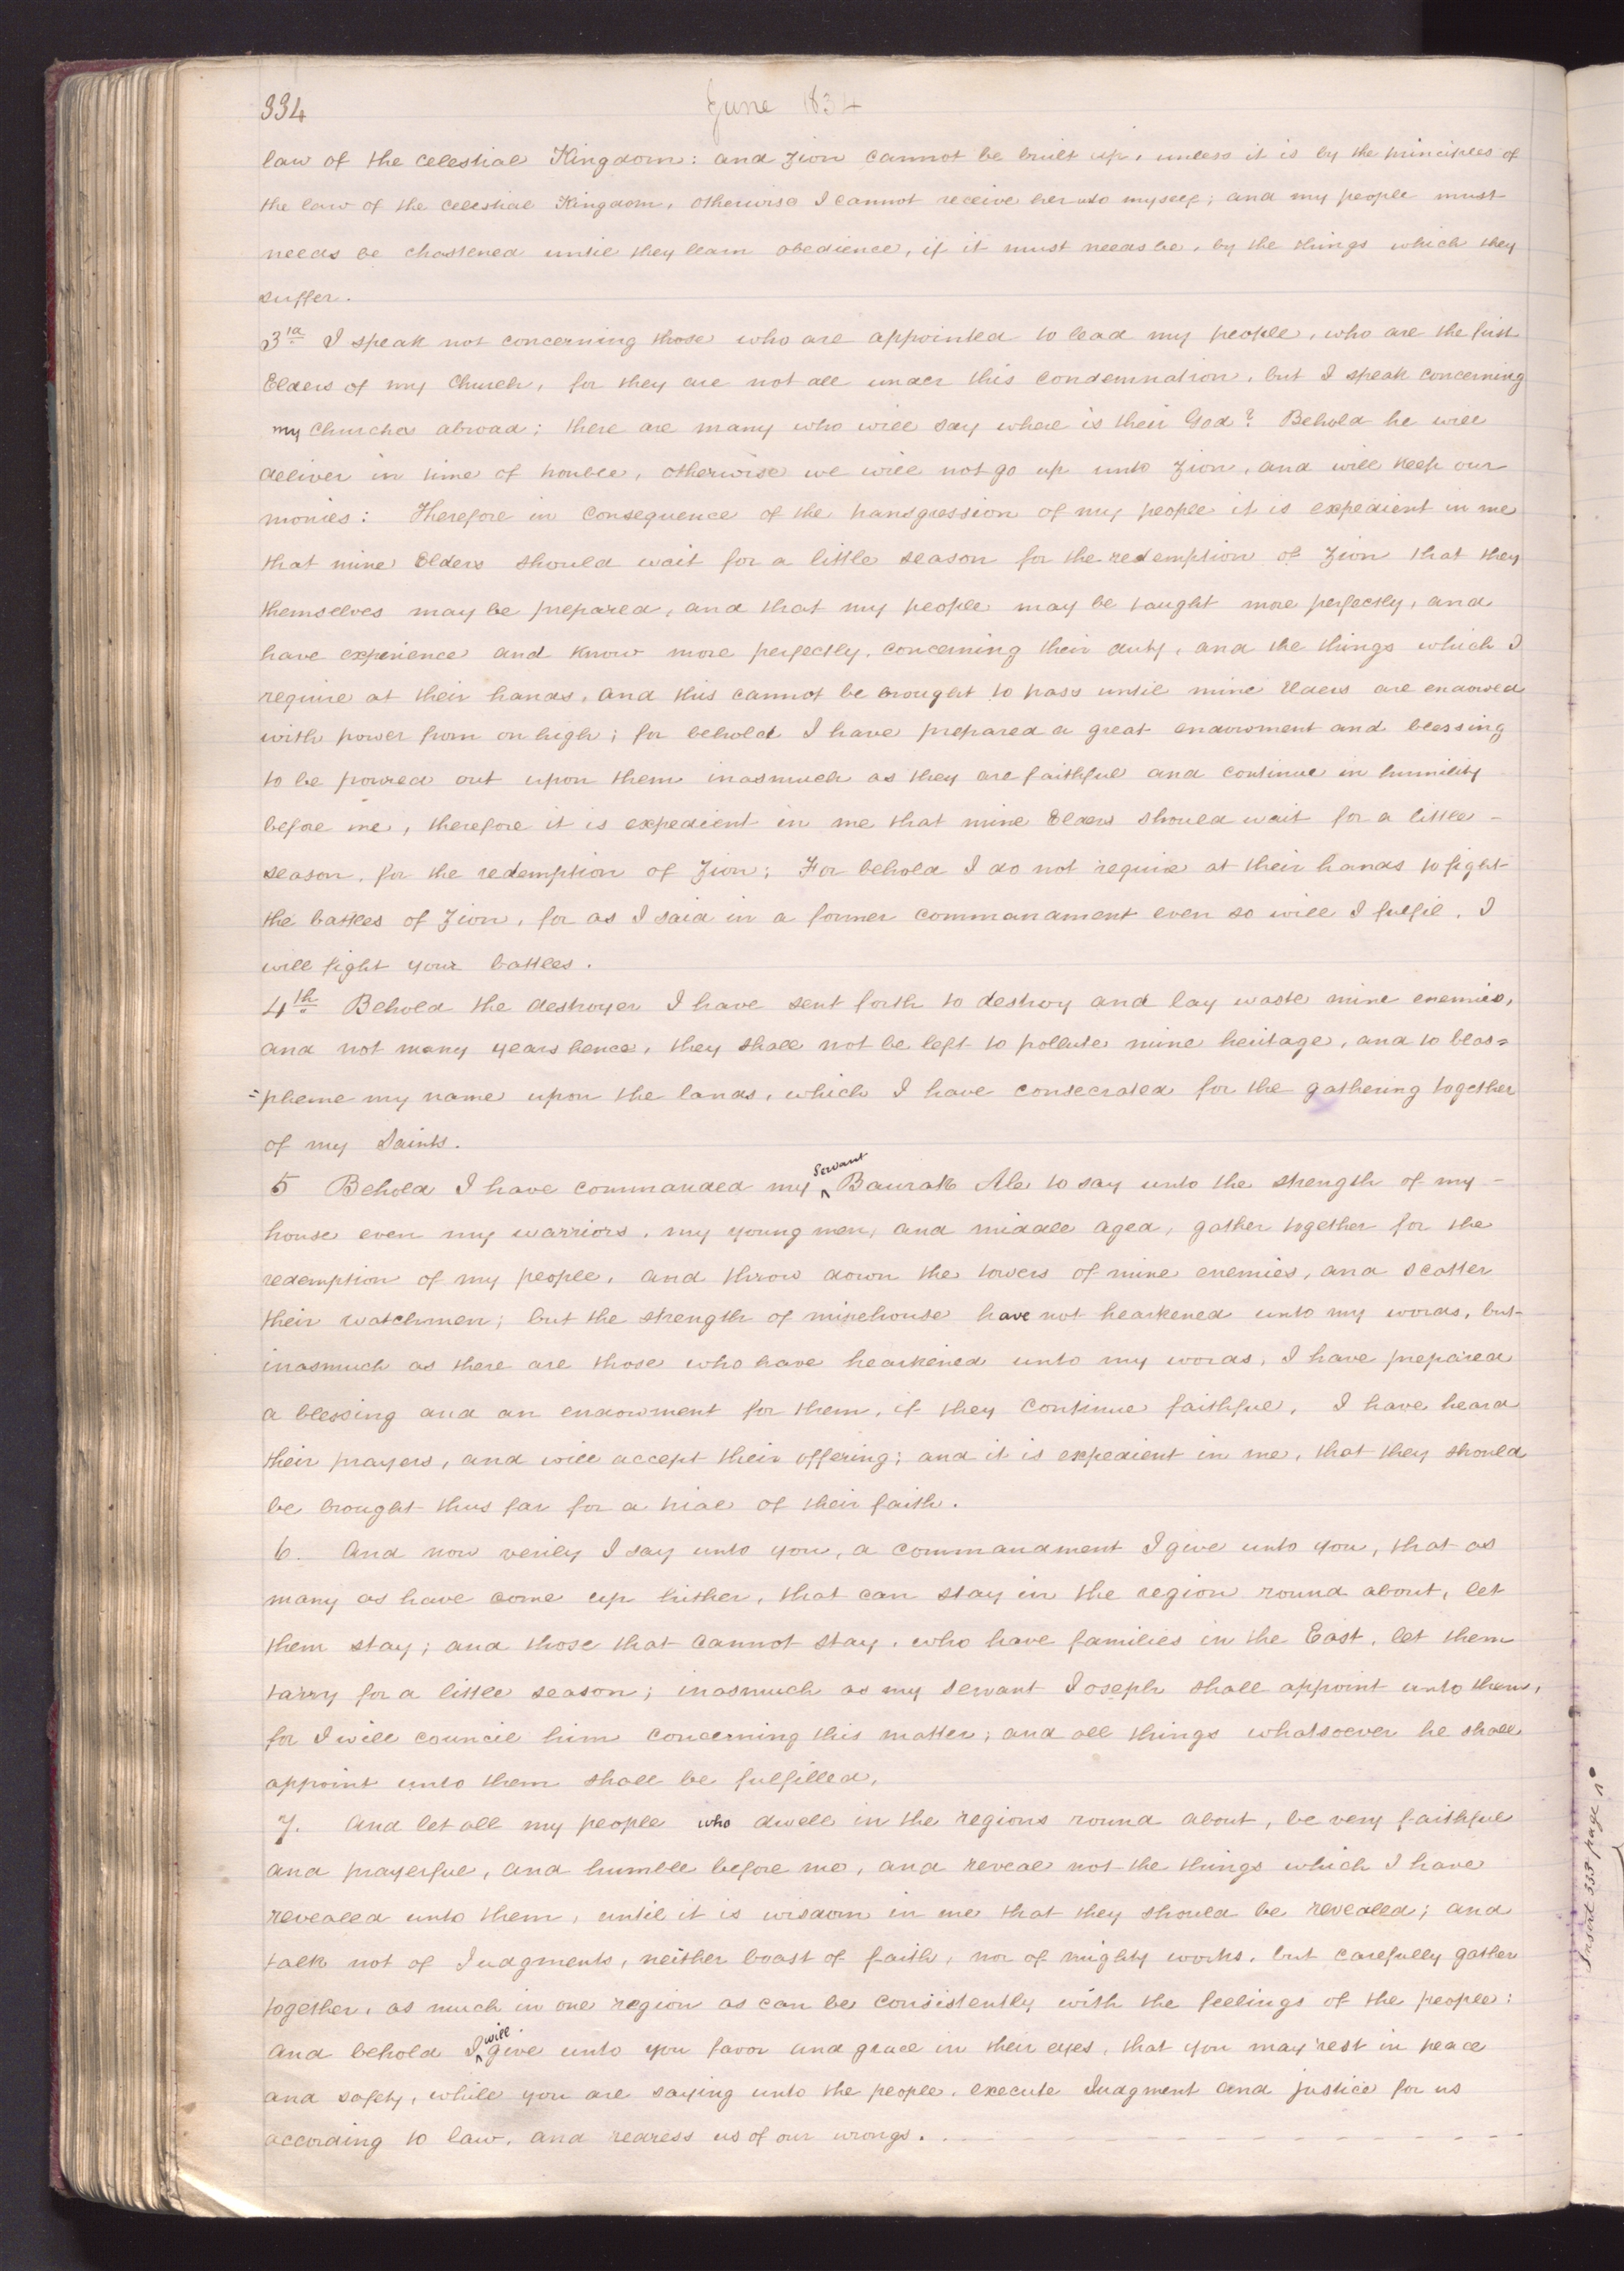 334
June 1834
law of the celestial Kingdom: and Zion cannot be built up, unless it is by the principles of
the law of the celestial Kingdom, otherwise I cannot receive her unto myself; and my people must
needs be chastened until they learn obedience, if it must needs be, by the things which they
suffer.
3rd I speak not concerning those who are appointed to lead my people, who are the first
Elders of my Church, for they are not all under this condemnation, but I speak concerning
my Churches abroad; there are many who will say where is their God? Behold he will
deliver in time of trouble, otherwise we will not go up unto Zion, and will keep our
monies: Therefore in consequence of the transgression of my people it is expedient in me
that mine Elders should wait for a little season for the redemption of Zion that they
themselves may be prepared, and that my people may be taught more perfectly, and
have experience and know more perfectly, concerning their duty, and the things which I
require at their hands, and this cannot be brought to pass until mine Elders are endowed
with power from on high; for behold I have prepared a great endowment and blessing
to be poured out upon them inasmuch as they are faithful and continue in humility
before me, therefore it is expedient in me that mine Elders should wait for a little -
season, for the redemption of Zion; For behold I do not require at their hands to fight
the battles of Zion, for as I said in a former commandment even so will I fulfil, I
will fight your battles.
4th Behold the destroyer I have sent forth to destroy and lay waste mine enemies,
and not many years hence, they shall not be left to pollute mine heritage, and to blas=
=pheme my name upon the lands, which I have consecrated for the gathering together
of my Saints.
5 Behold I have commanded my ^Servant Baurak Ale to say unto the strength of my -
house even my warriors, my young men, and middle aged, gather together for the
redemption of my people, and throw down the towers of mine enemies, and scatter
their watchmen; but the strength of minehouse have not hearkened unto my words, but
inasmuch as there are those who have hearkened unto my words, I have prepared
a blessing and an endowment for them, if they continue faithful, I have heard
their prayers, and will accept their offering; and it is expedient in me, that they should
be brought thus far for a trial of their faith.
6. And now verily I say unto you, a commandment I give unto you, that as
many as have come up hither, that can stay in the region round about, let
them stay; and those that cannot stay, who have families in the East, let them
tarry for a little season; inasmuch as my servant Joseph shall appoint unto them,
for I will council him concerning this matter; and all things whatsoever he shall
appoint unto them shall be fulfilled,
7. And let all my people who dwell in the regions round about, be very faithful
and prayerful, and humble before me, and reveal not the things which I have
revealed unto them, until it is wisdom in me that they should be revealed; and
talk not of Judgments, neither boast of faith, nor of mighty works, but carefully gather
together, as much in one region as can be consistently with the feelings of the people:
And behold I ^will give unto you favor and grace in their eyes, that you may rest in peace
and safety, while you are saying unto the people, execute Judgment and justice for us
according to law, and redress us of our wrongs. . - - - - - - - - - - - - - -
Insert 335 page